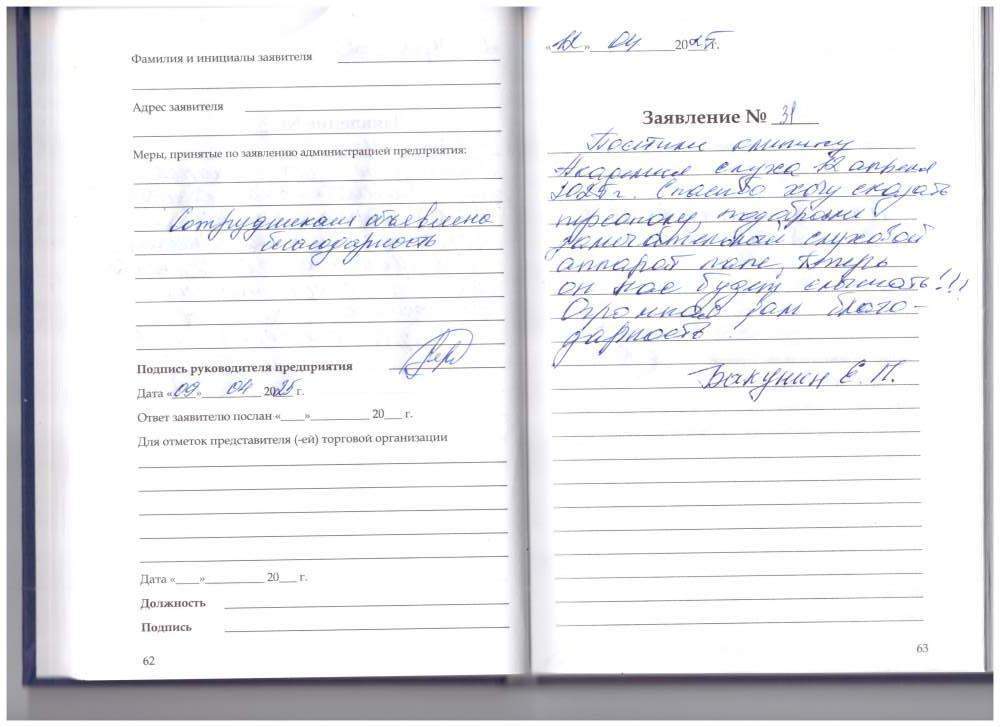 Фамилия и инициалы заявителя
Адрес заявителя
Меры, принятые по заявлению администрацией предприятия:
Сотрудникам объявлена
благодарность
Подпись руководителя предприятия
Дата «09» 04 2025 г.
Ответ заявителю послан «____»__________ 20___ г.
Для отметок представителя (-ей) торговой организации
Дата «____»__________ 20___ г.
Должность
Подпись
62
«12» 04 2025 г.
Заявление № 31
Посетили клинику
Академия слуха 12 апреля
2025 г. Спасибо хочу сказать
персоналу, подобрали
замечательный слуховой
аппарат папе, теперь
он нас будет слышать!!!
Огромная вам благо-
дарность.
Бакунин Е. П.
63